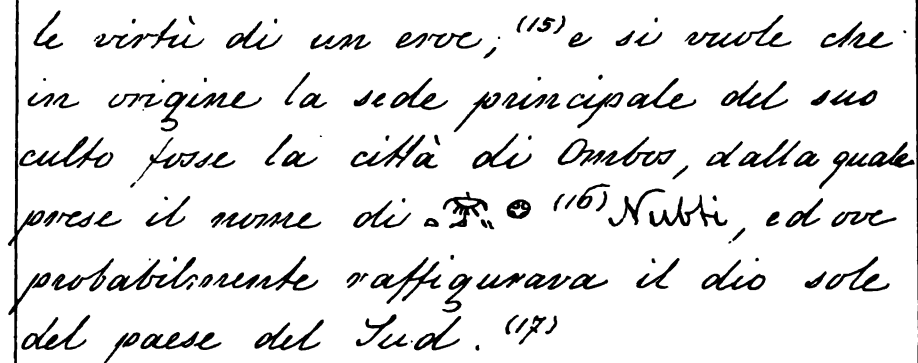 le virtù di un eroe, (15) e si vuole che
in origine la sede principale del suo
culto fosse la città di Ombos, dalla quale
prese il nome di (16) Nubti, ed ove
probabilmente raffigurava il dio sole
del paese del Sud. (17)